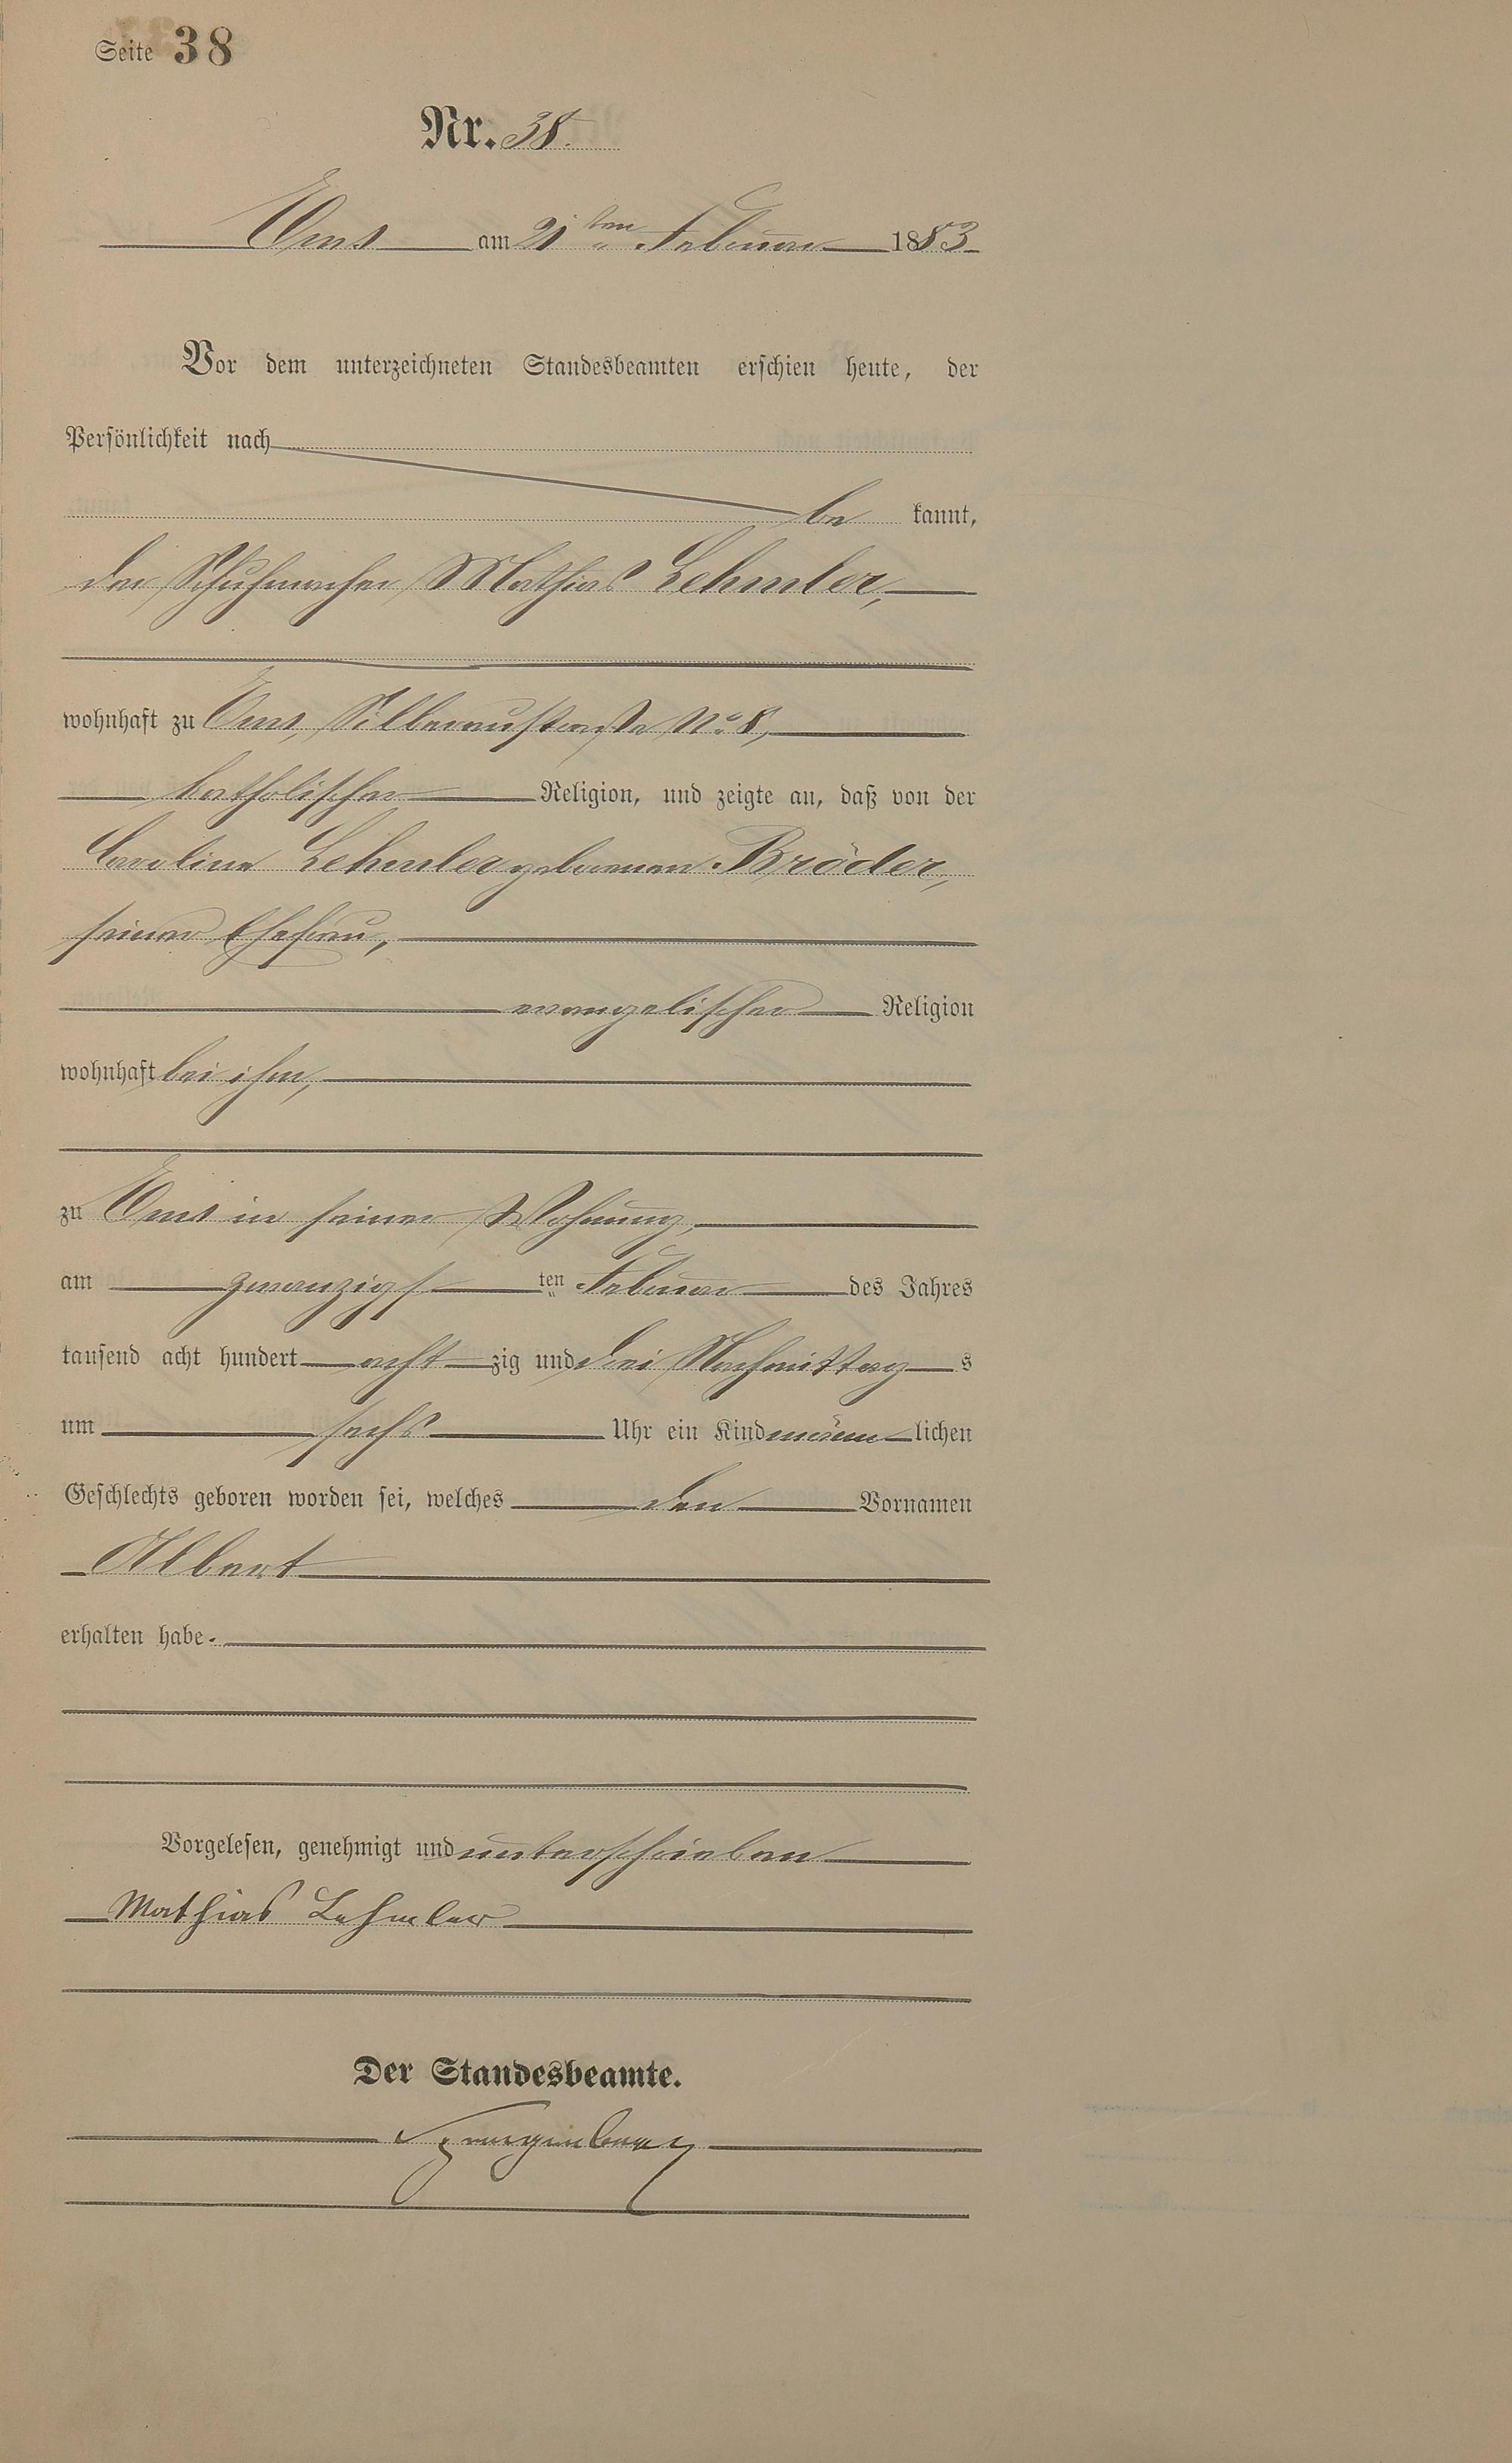 Seite 38
Nr. 38.
Ems am 21ten Februar 1883
Vor dem unterzeichneten Standesbeamten erschien heute, der
Persönlichkeit nach
be kannt,
der Schuhmacher Mathias Lehmler,
wohnhaft zu Ems, Silberaustraße No. 8,
katholischer Religion, und zeigte an, daß von der
Caroline Lehmler geborenen Bröder,
seiner Ehefrau,
evangelischer Religion
wohnhaft bei ihm,
zu Ems in seiner Wohnung,
am zwanzigs ten Februar des Jahres
tausend acht hundert acht zig und drei Nachmittag s
um sechs Uhr ein Kind männ lichen
Geschlechts geboren worden sei, welches den Vornamen
Albert
erhalten habe.
Vorgelesen, genehmigt und unterschrieben
Mathias Lehmler
Der Standesbeamte.